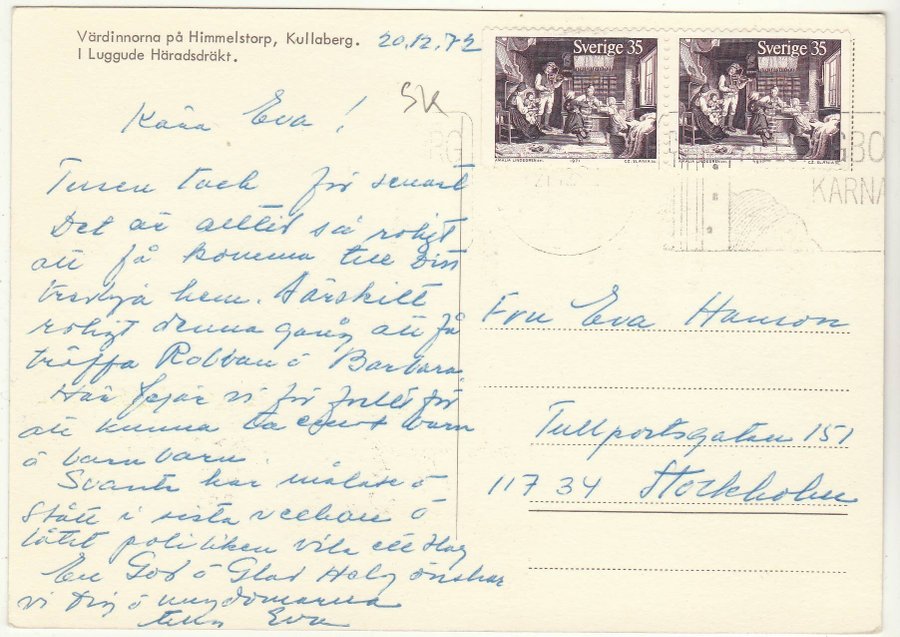 Värdinnorna på Himmelstorp, Kullaberg.
I Luggude Häradsdräkt.
20.12.72
SK
Kära Eva!
Tusen tack för senast
Det är alltid så roligt
att få komma till Ditt
hem. Särskilt
roligt denna gång att få
träffa Robban ö Barbara
Här fejar vi för fullt för
att kunna ta emot barn
ö barnbarn.
Svante har målat ö
i sista veckan ö
låtit politiken vila ett tag
En God ö Glad Helg önskar
vi Dig ö ungdomarna
Eva
Sverige 35
AMALIA LINDEGREN
1971
CZ. SLANIA SC.
Sverige 35
AMALIA LINDEGREN
1971
CZ. SLANIA SC.
RG
GBO
KÄRNA
Fru Eva Hanson
Tullportsgatan 151
117 34 Stockholm